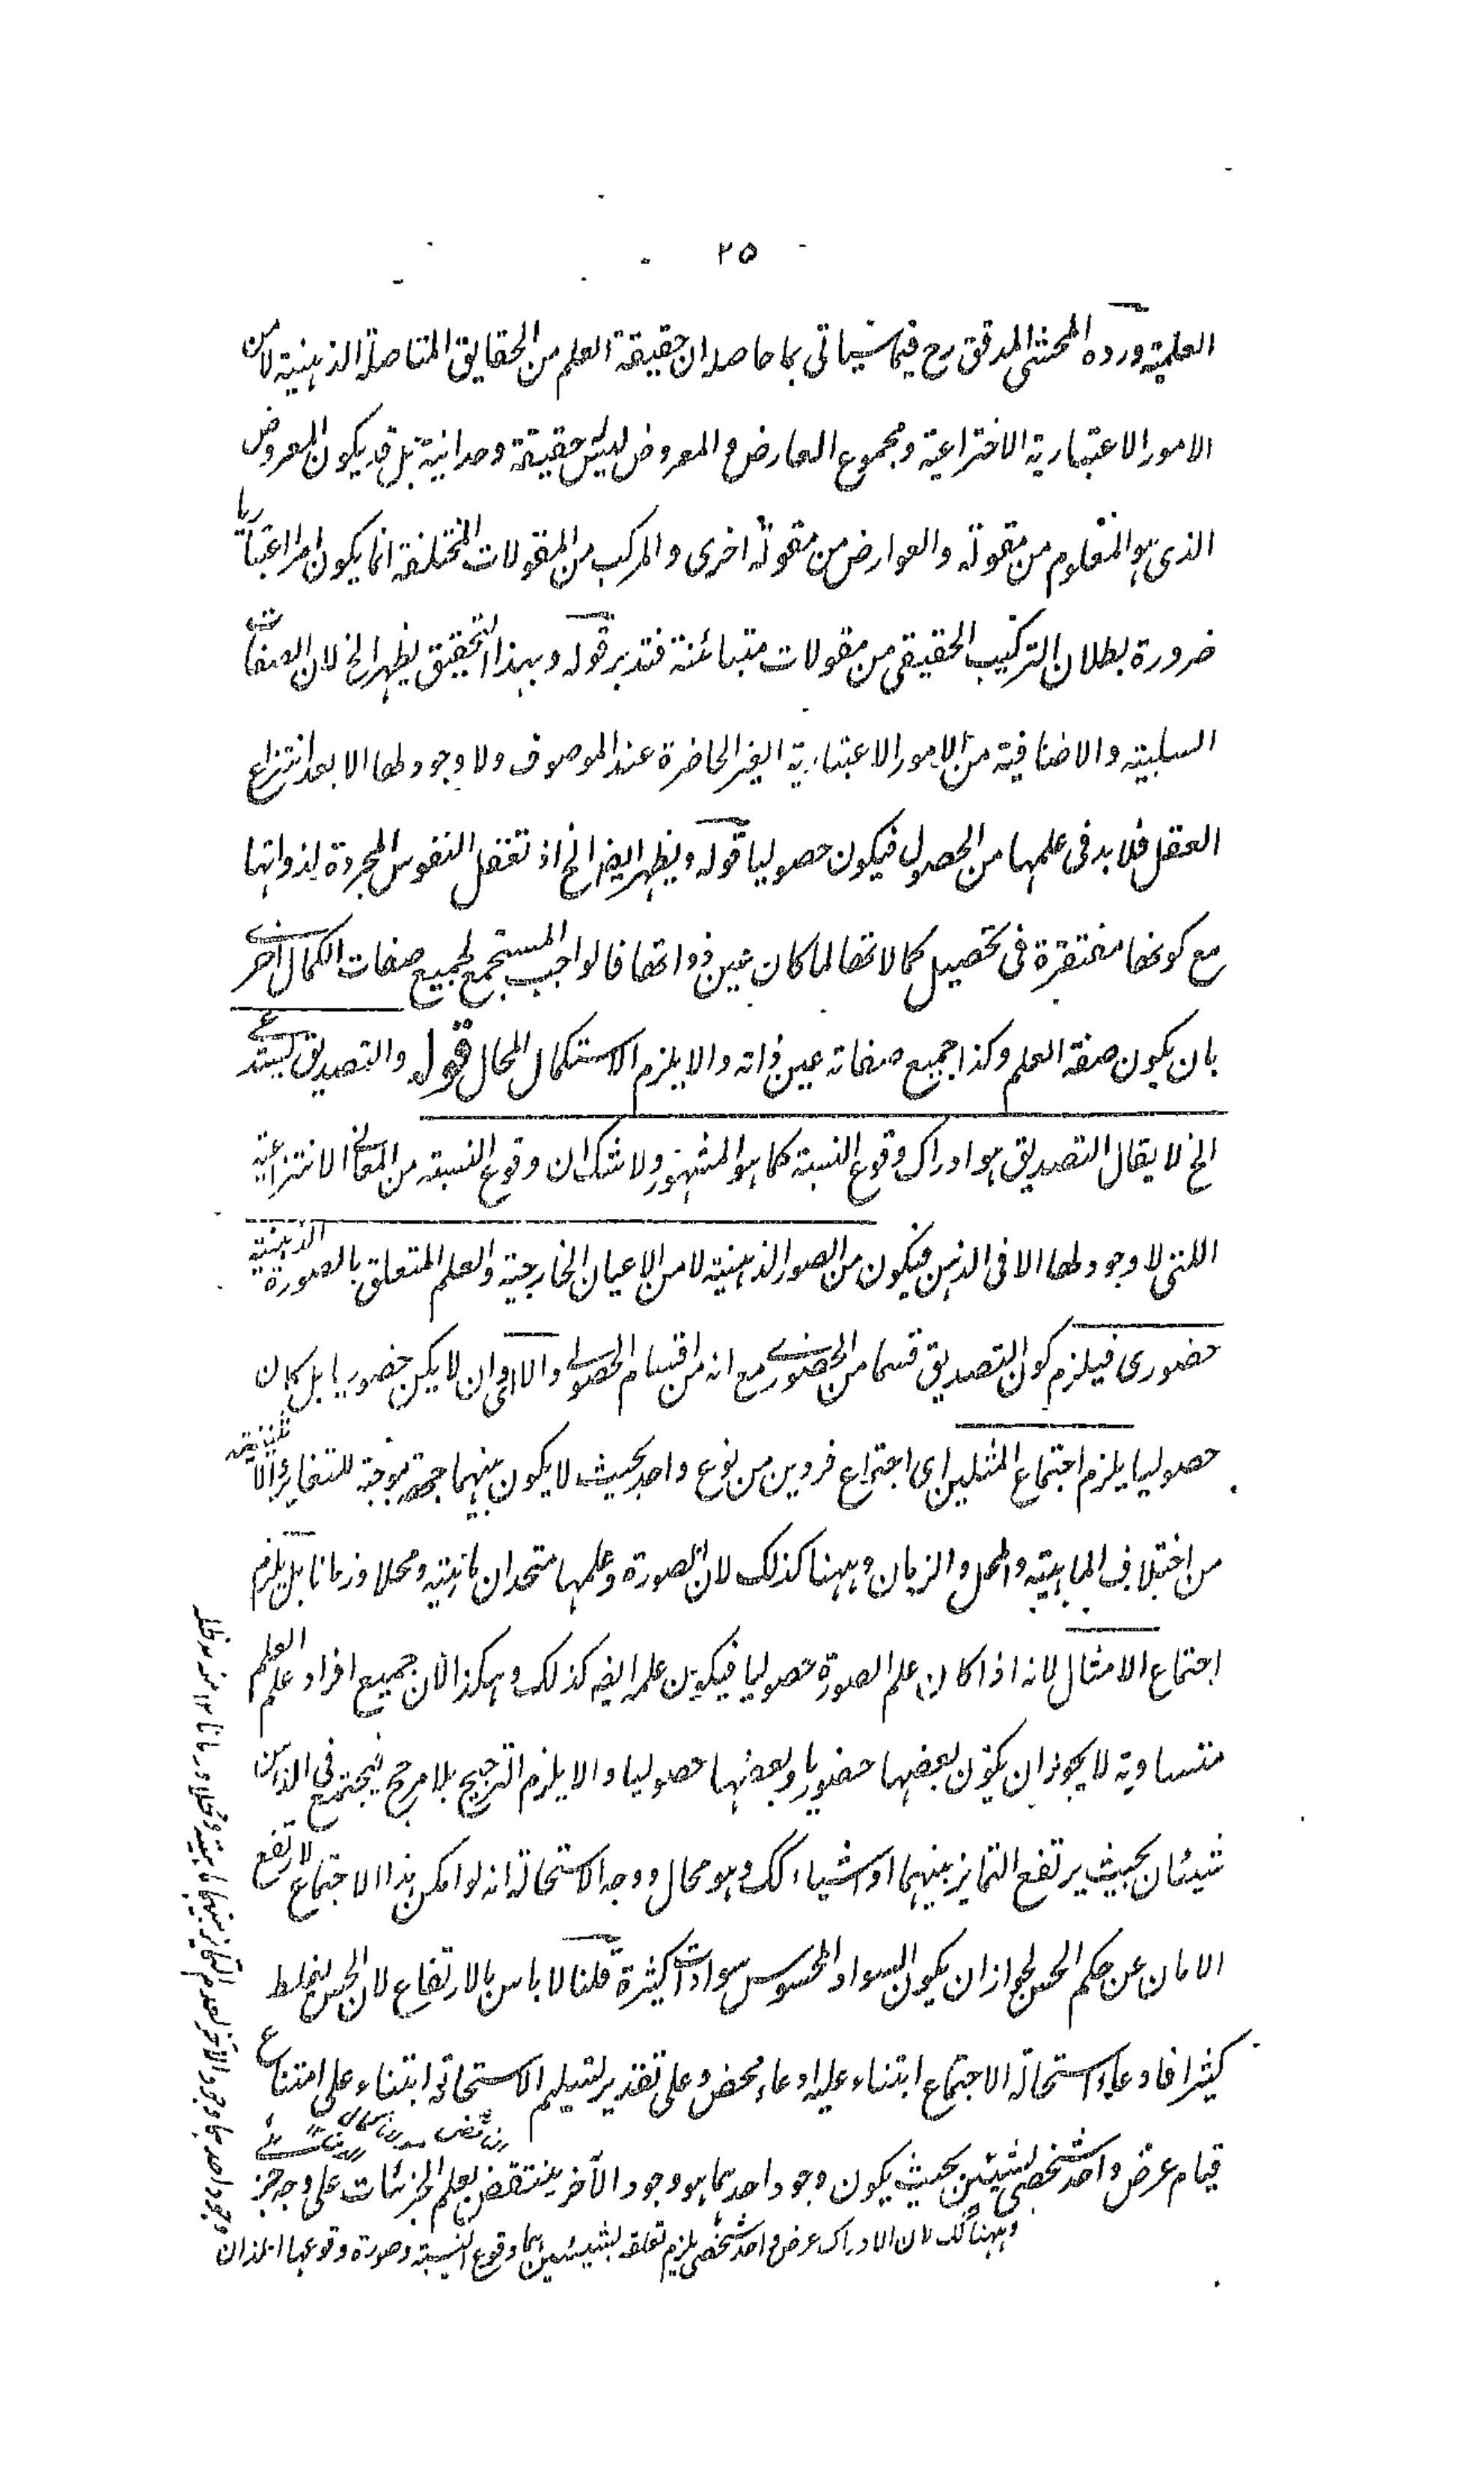 ٢٥
العلمية ورده المحشى المدقق رح فيما سيأتى بما حاصله ان حقيقة العلم من الحقايق المتاصلة الذهنية لا من
الامور الاعتبارية الاختراعية ومجموع العارض والمعروض ليس حقيقة وحدانية بل قد يكون المعروض
الذى هو المعلوم من مقولة والعوارض من مقولة اخرى والمركب من المقولات المختلفة انما يكون امرا اعتباريا
ضرورة بطلان التركيب الحقيقى من مقولات متبائنة فتدبر قوله وبهذا التحقيق يظهر الخ لان الصفات
السلبية والاضافية من الامور الاعتبارية الغير الحاضرة عند الموصوف ولا وجود لها الا بعد انتزاع
العقل فلا بد فى علمها من الحصول فيكون حصوليا قوله ويظهر ايضا الخ اذ تعقل النفوس المجردة لذواتها
مع كونها مفتقرة فى تحصيل كمالاتها لما كان عين ذواتها فالواجب المستجمع لجميع صفات الكمال احرى
بان يكون صفة العلم وكذا جميع صفاته عين ذاته والا يلزم الاستكمال المحال قوله والتصديق يستدعى
الخ لا يقال التصديق هو ادراك وقوع النسبة كما هو المشهور ولا شك ان وقوع النسبة من المعانى الانتزاعية
اللتى لا وجود لها الا فى الذهن فيكون من الصور الذهنية لا من الاعيان الخارجية والعلم المتعلق بالصورة الذهنية
حضورى فيلزم كون التصديق قسما من الحضورى مع انه من اقسام الحصولى والا اى وان لا يكن حضوريا بل كان
حصوليا يلزم اجتماع المثلين اى اجتماع فردين من نوع واحد بحيث لا يكون بينهما جهة موجبة للتغاير والاثنينية
من اختلاف الماهية والمحل والزمان وههنا كذلك لان الصورة وعلمها متحدان ماهية ومحلا وزمانا بل يلزم
اجتماع الامثال لانه اذا كان علم الصورة حصوليا فيكون علمه ايضا كذلك وهكذا لان جميع افراد علم العلم
متساوية لا يجوز ان يكون بعضها حضوريا وبعضها حصوليا والا يلزم الترجيح بلا مرجح فيجتمع فى الذهن
شيئان بحيث يرتفع التمايز بينهما او اشياء كك وهو محال ووجه الاستحالة انه لو امكن هذا الاجتماع لارتفع
الامان عن حكم الحس لجواز ان يكون السواد المحسوس سوادات كثيرة قلنا لا باس بالارتفاع لان الحس يغلط
كثيرا فادعاء استحالة الاجتماع ابتناء عليه ادعاء محض وعلى تقدير تسليم الاستحالة ابتناء على امتناع
قيام عرض واحد شخصى بشيئين بحيث يكون وجود احدهما هو وجود الآخر ينتقض بعلم الجزئيات على وجه جزئى
وههنا كك لان الادراك عرض واحد شخصى يلزم تعلقه بشيئين هما وقوع النسبة وصورة وقوعها اللذان
وجود احدهما وجود الآخر لعدم التمايز بينهما ماهية ومحلا وزمانا ١٢ منه مدظله